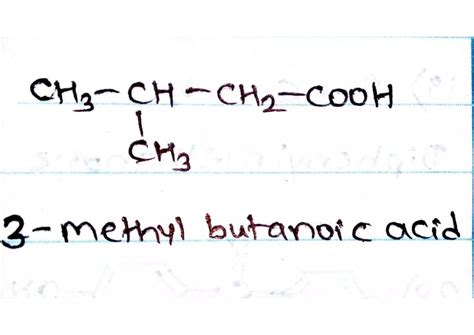 CH3-CH-CH2-COOH
|
CH3
3-methyl butanoic acid